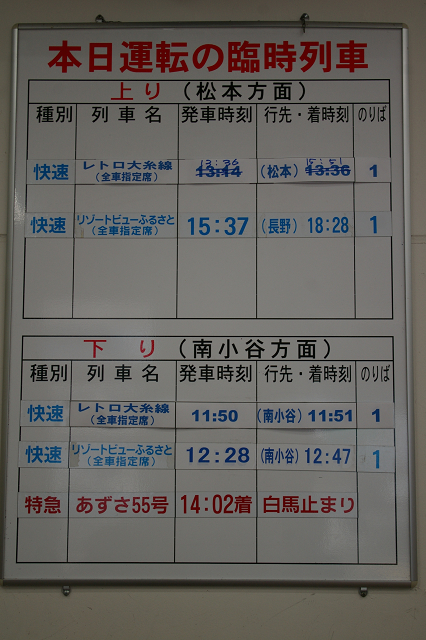 本日運転の臨時列車
上り（松本方面）
種別 列車名 発車時刻 行先・着時刻 のりば
快速 レトロ大糸線 13:36 13:14 （松本） 15:51 13:36 1
（全車指定席）
快速 リゾートビューふるさと 15:37 （長野） 18:28 1
（全車指定席）
下り（南小谷方面）
種別 列車名 発車時刻 行先・着時刻 のりば
快速 レトロ大糸線 11:50 （南小谷） 11:51 1
（全車指定席）
快速 リゾートビューふるさと 12:28 （南小谷） 12:47 1
（全車指定席）
特急 あずさ55号 14:02着 白馬止まり